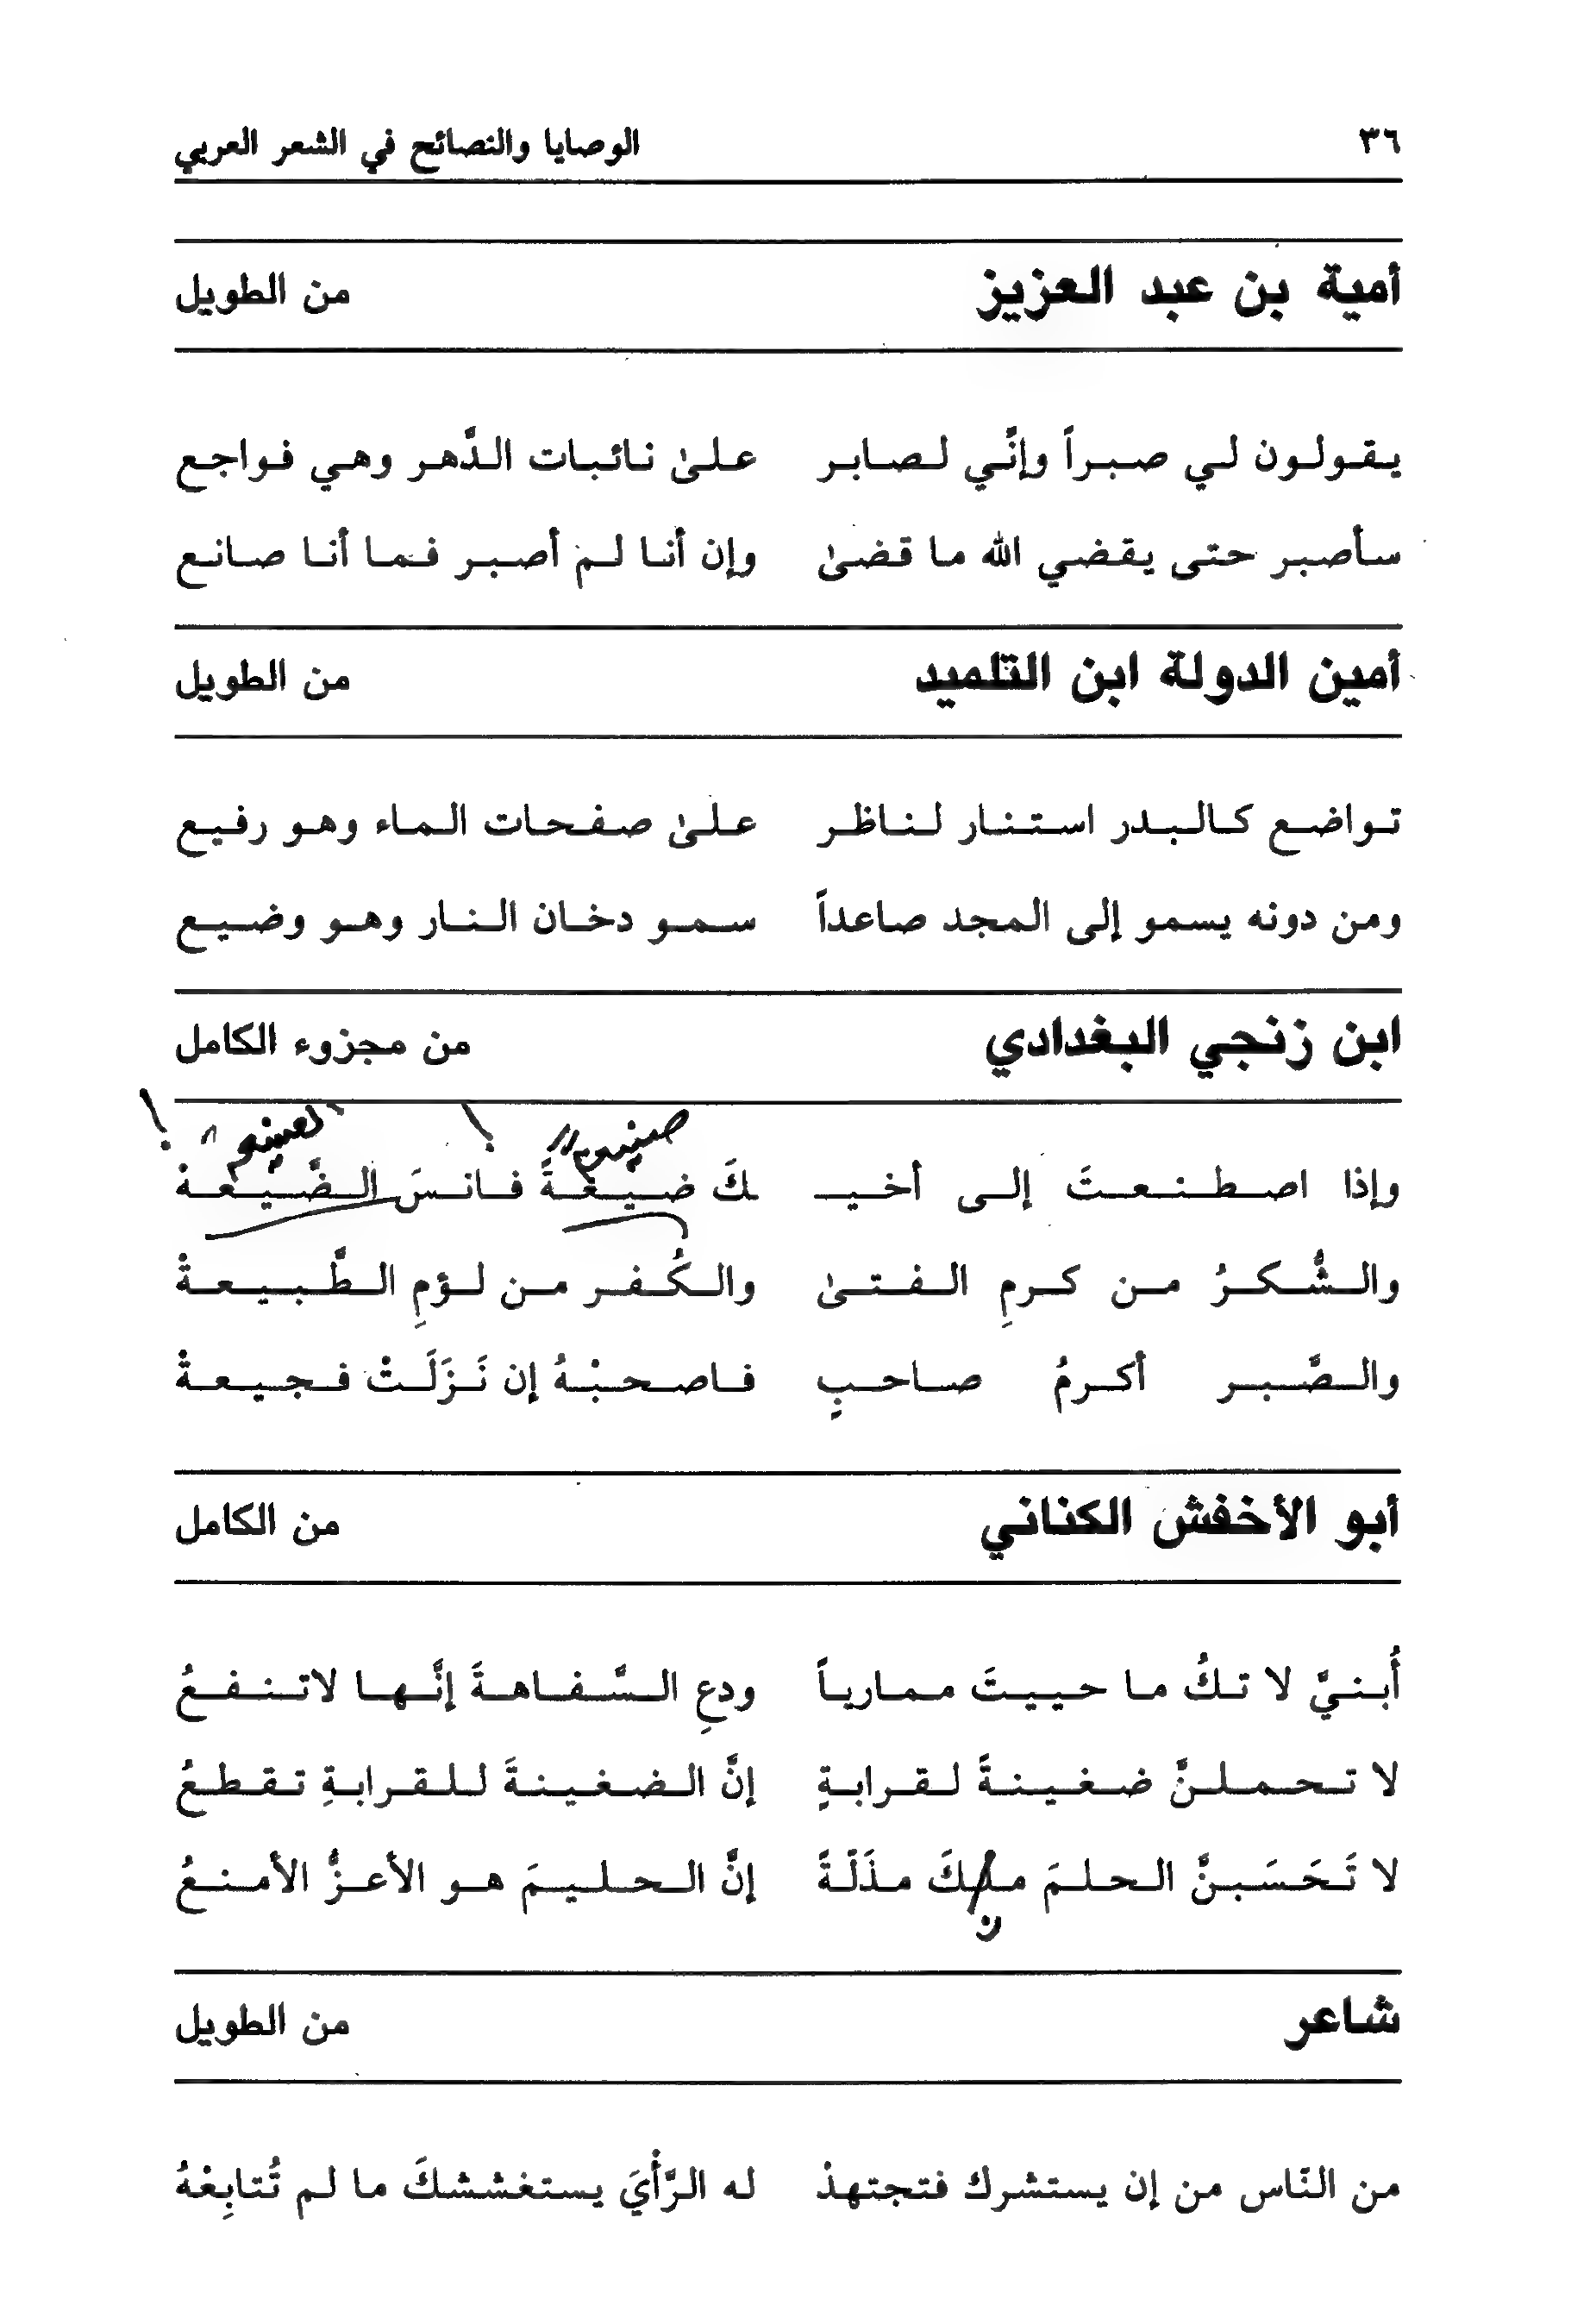 ٣٦ الوصايا والنصائح في الشعر العربي
أمية بن عبد العزيز من الطويل
يقولون لي صبراً وإنَّي لصابر علىٰ نائبات الدَّهر وهي فواجع
سأصبر حتى يقضي الله ما قضىٰ وإن أنا لم أصبر فما أنا صانع
أمين الدولة ابن التلميد من الطويل
تواضع كالبدر استنار لناظر علىٰ صفحات الماء وهو رفيع
ومن دونه يسمو إلى المجد صاعداً سمو دخان النار وهو وضيع
ابن زنجي البغدادي من مجزوء الكامل
! !
وإذا اصطنعتَ إلى أخيـ ـكَ ضيعةً فانسَ الضَّيعهْ
والشُّكرُ من كرمِ الفتىٰ والكُفر من لؤمِ الطَّبيعةْ
والصَّبر أكرمُ صاحبٍ فاصحبْهُ إن نَزَلَتْ فجيعةْ
أبو الأخفش الكناني من الكامل
أُبنيَّ لا تكُ ما حييتَ ممارياً ودعِ السَّفاهةَ إنَّها لاتنفعُ
لا تحملنَّ ضغينةً لقرابةٍ إنَّ الضغينةَ للقرابةِ تقطعُ
لا تَحَسَبنَّ الحلمَ ملكَ مذَلّةً إنَّ الحليمَ هو الأعزُّ الأمنعُ
ن
شاعر من الطويل
من النّاس من إن يستشرك فتجتهدْ له الرَّأْيَ يستغششكَ ما لم تُتابِعْهُ